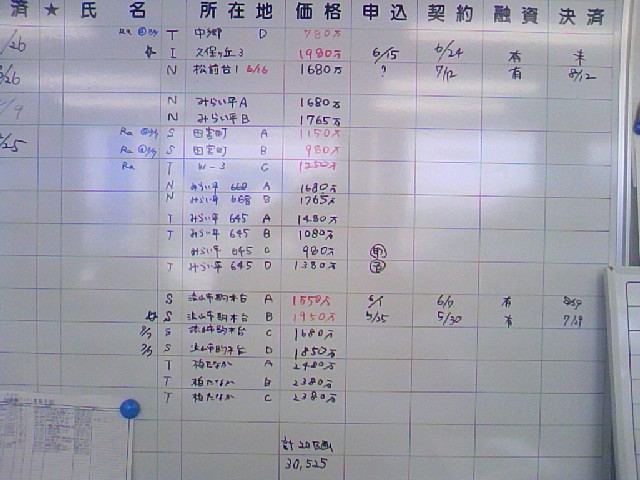 済 ★ 氏 名 所在地 価格 申込 契約 融資 決済
T 中郷 D 780万
I 久保ヶ丘3 1980万 6/15 6/24 有 未
N 松前台1 6/16 1680万 ? 7/12 有 8/12
N みらい平A 1680万
N みらい平B 1765万
Ra S 田宮町 A 1150万
Ra S 田宮町 B 980万
Ra T W-3 C 1250万
N みらい平 668 A 1680万
N みらい平 668 B 1765万
T みらい平 645 A 1480万
T みらい平 645 B 1080万
みらい平 645 C 980万
T みらい平 645 D 1380万
S 流山市駒木台 A 1550万 6/1 6/9 有
S 流山市駒木台 B 1950万 5/25 5/30 有 7/29
S 流山市駒木台 C 1680万
S 流山市駒木台 D 1850万
T 柏たなか A 2480万
T 柏たなか B 2380万
T 柏たなか C 2380万
計 20区画
30,525